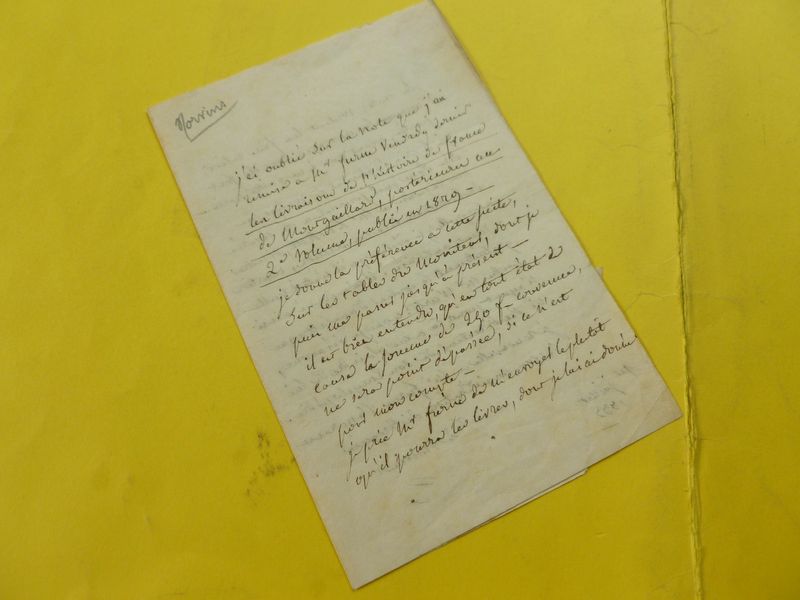 Norvins
j'ai oublié sur la Note que j'ai
remise a Mr furne Vendredy dernier
les livraisons de l'histoire de france
de Montgaillard, postérieures au
2e Volume, publié en 1829 —
je donne la préférence a cette suite,
Sur les tables du Moniteur, dont je
puis me passer jusqu'à présent —
il est bien entendu, qu'en tout état de
cause la somme de 250 f convenue,
ne sera point dépassée, si ce n'est
pour mon compte —
je prie Mr furne de m'envoyer le plutôt
qu'il pourra les livres, dont je lui ai donné